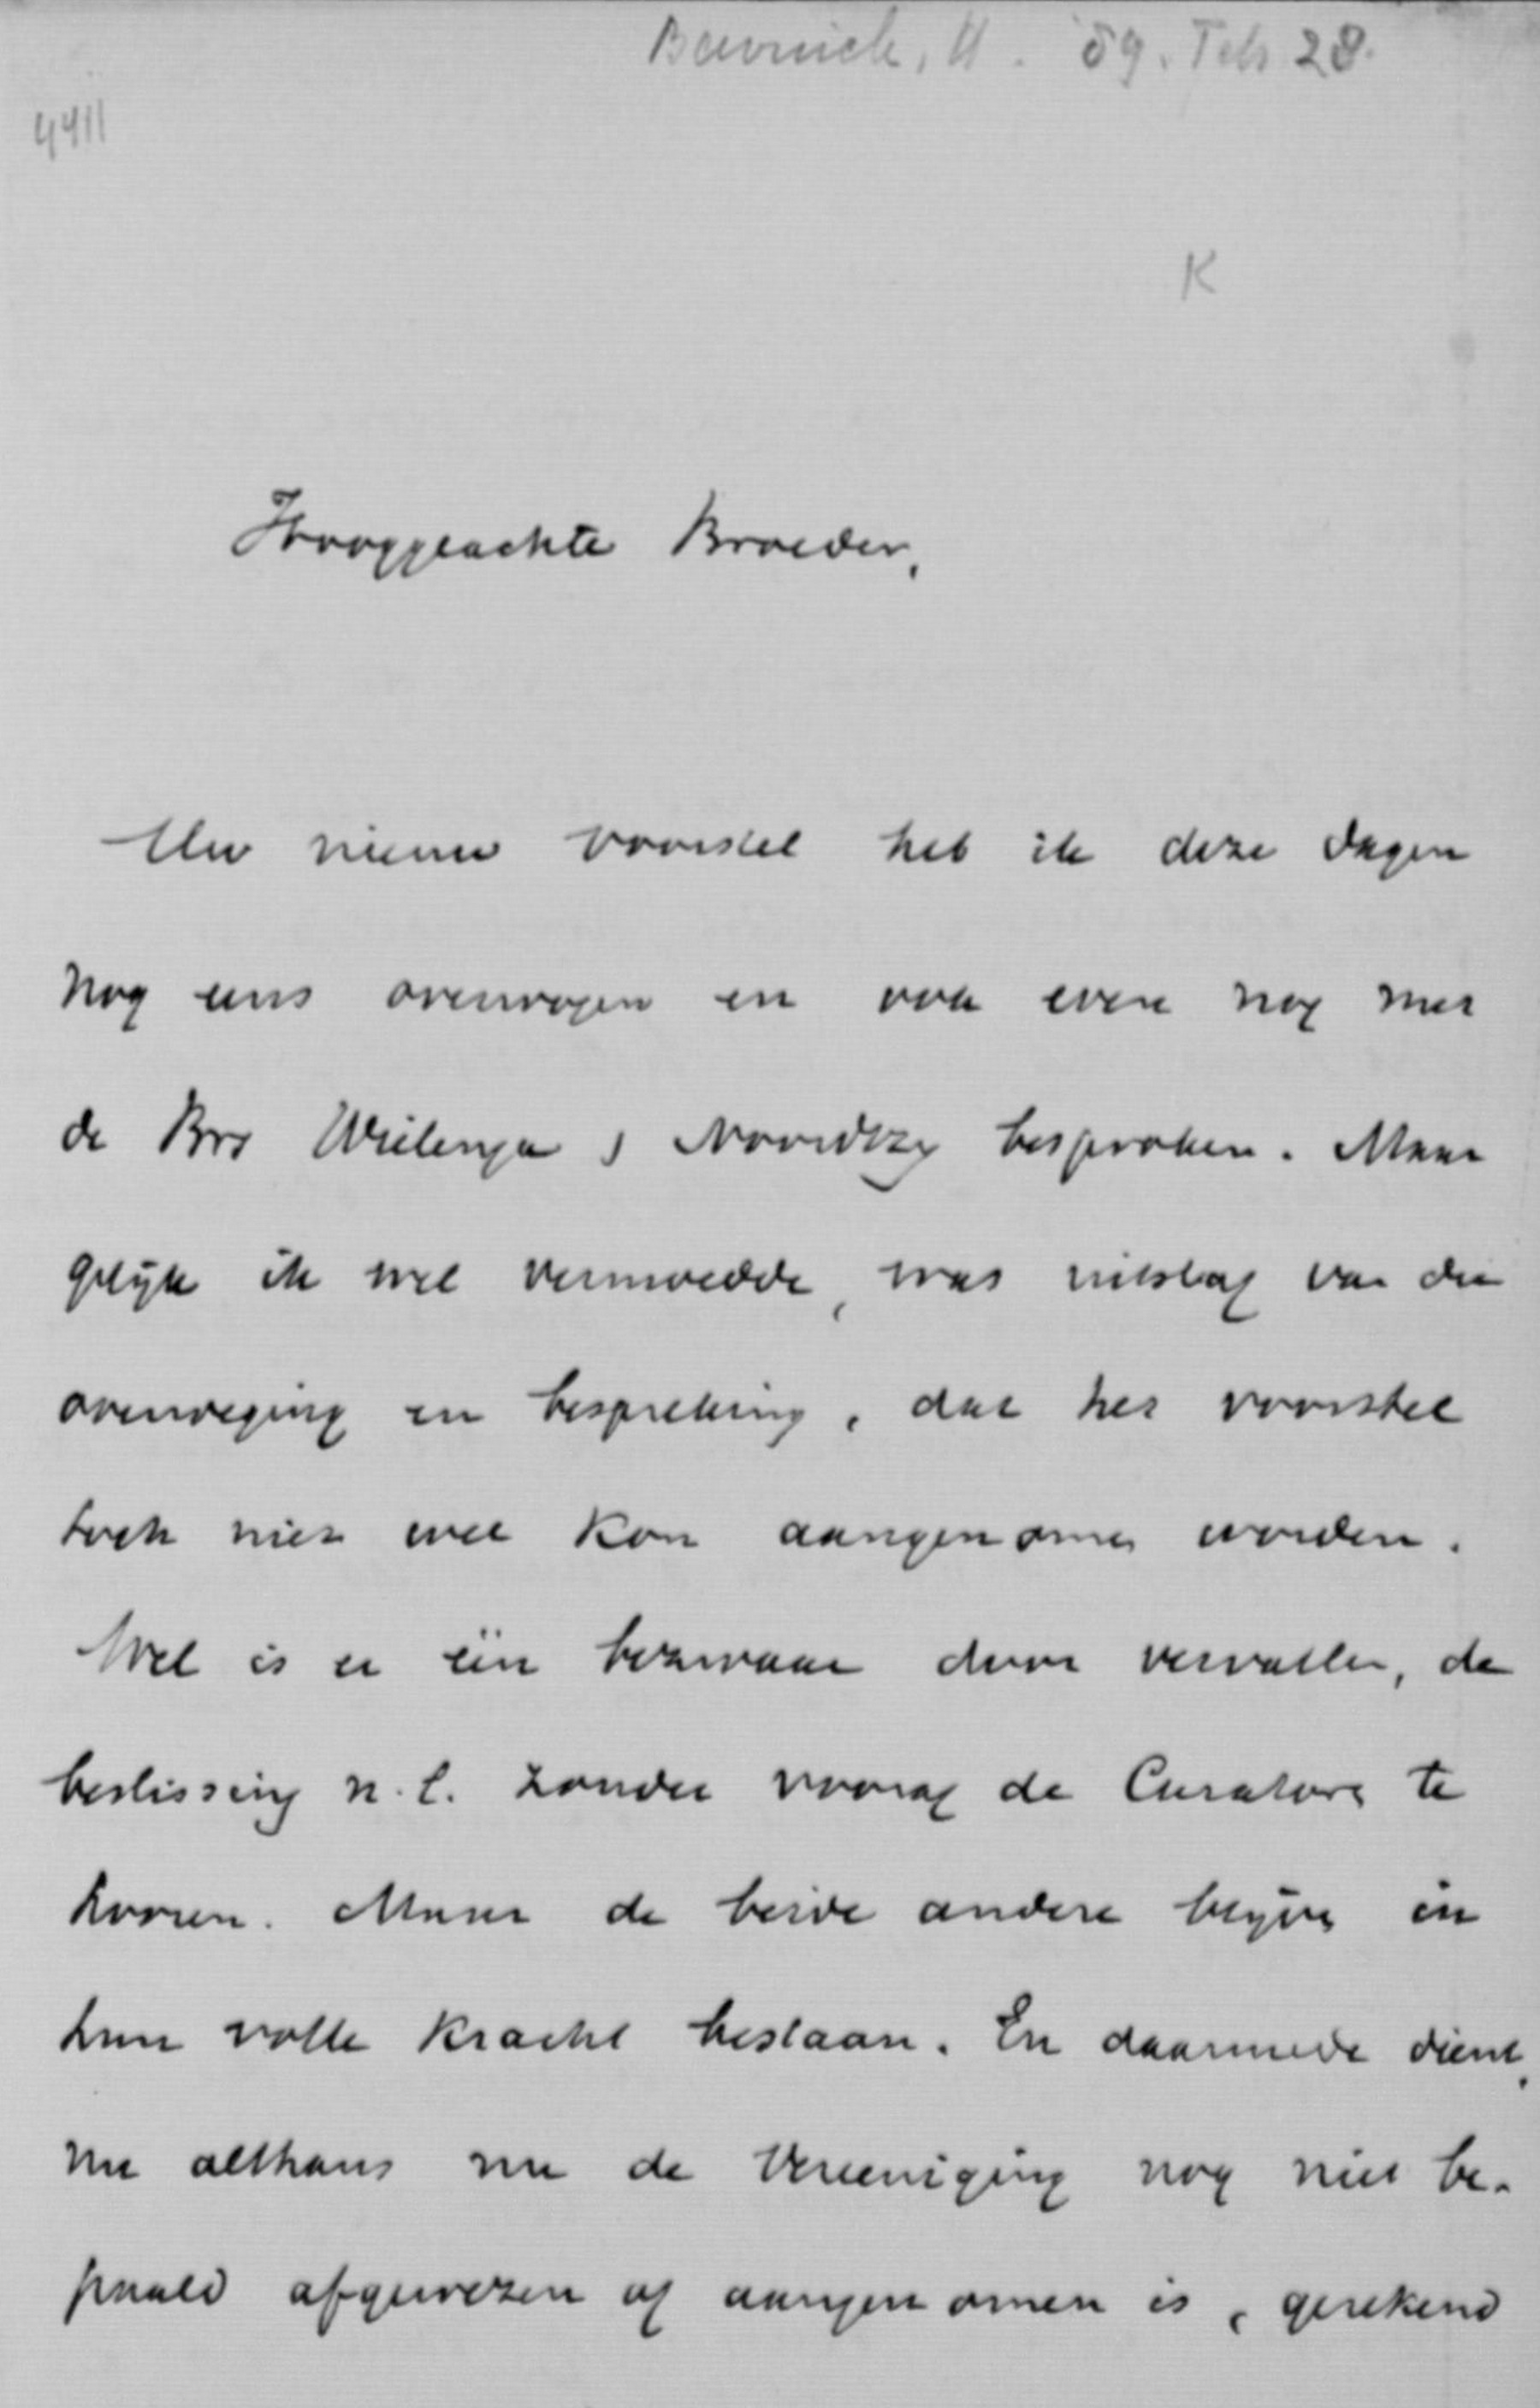 Bavinck, H. 89. Feb 28.
4411
K
Hooggeachte Broeder,
Uw nieuw voorstel heb ik deze dagen
nog eens overwogen en ook even nog met
de Brs Wielenga & Noordtzy besproken. Maar
gelijk ik wel vermoedde, was uitslag van die
overweging en bespreking, dat het voorstel
toch niet wel kon aangenomen worden.
Wel is er één bezwaar door vervallen, de
beslissing n.l. zonder vooraf de Curators te
hooren. Maar de beide andere blijven in
hun volle kracht bestaan. En daarmede dient,
nu althans nu de Vereeniging nog niet be-
paald afgewezen of aangenomen is, gerekend